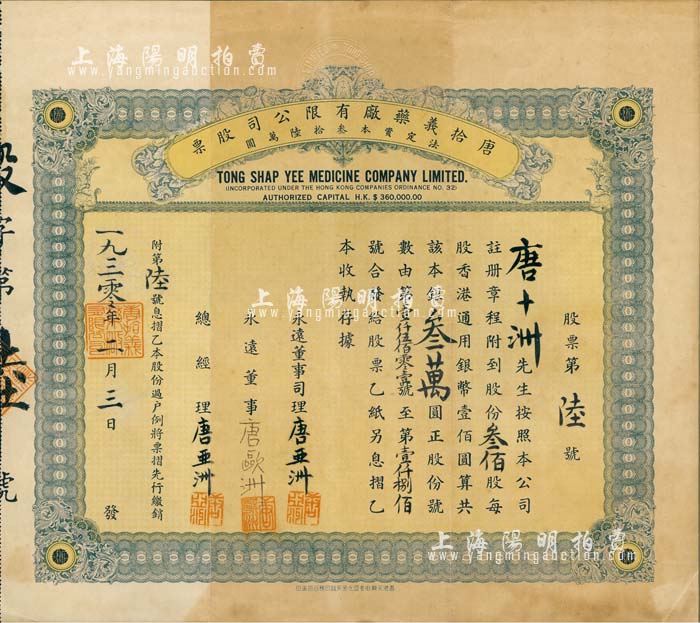 上海陽明拍賣
www.yangmingauction.com
唐拾義藥廠有限公司股票
法定資本叁拾陸萬圓
TONG SHAP YEE MEDICINE COMPANY LIMITED.
(INCORPORATED UNDER THE HONG KONG COMPANIES ORDINANCE NO. 32)
AUTHORIZED CAPITAL H.K. $ 360,000.00
股票第陸號
唐十洲先生按照本公司
註册章程附到股份叁佰股每
股香港通用銀幣壹佰圓算共
該本銀叁萬圓正股份號
數由第壹仟伍佰零壹號至第壹仟捌佰
號合發給股票乙紙另息摺乙
本收執存據
永遠董事司理唐亞洲
永遠董事唐歐洲
總經理唐亞洲
附第陸號息摺乙本股份過户例將票摺先行繳銷
一九三零年二月三日發
上海陽明拍賣
www.yangmingauction.com
上海陽明拍賣
www.yangmingauction.com